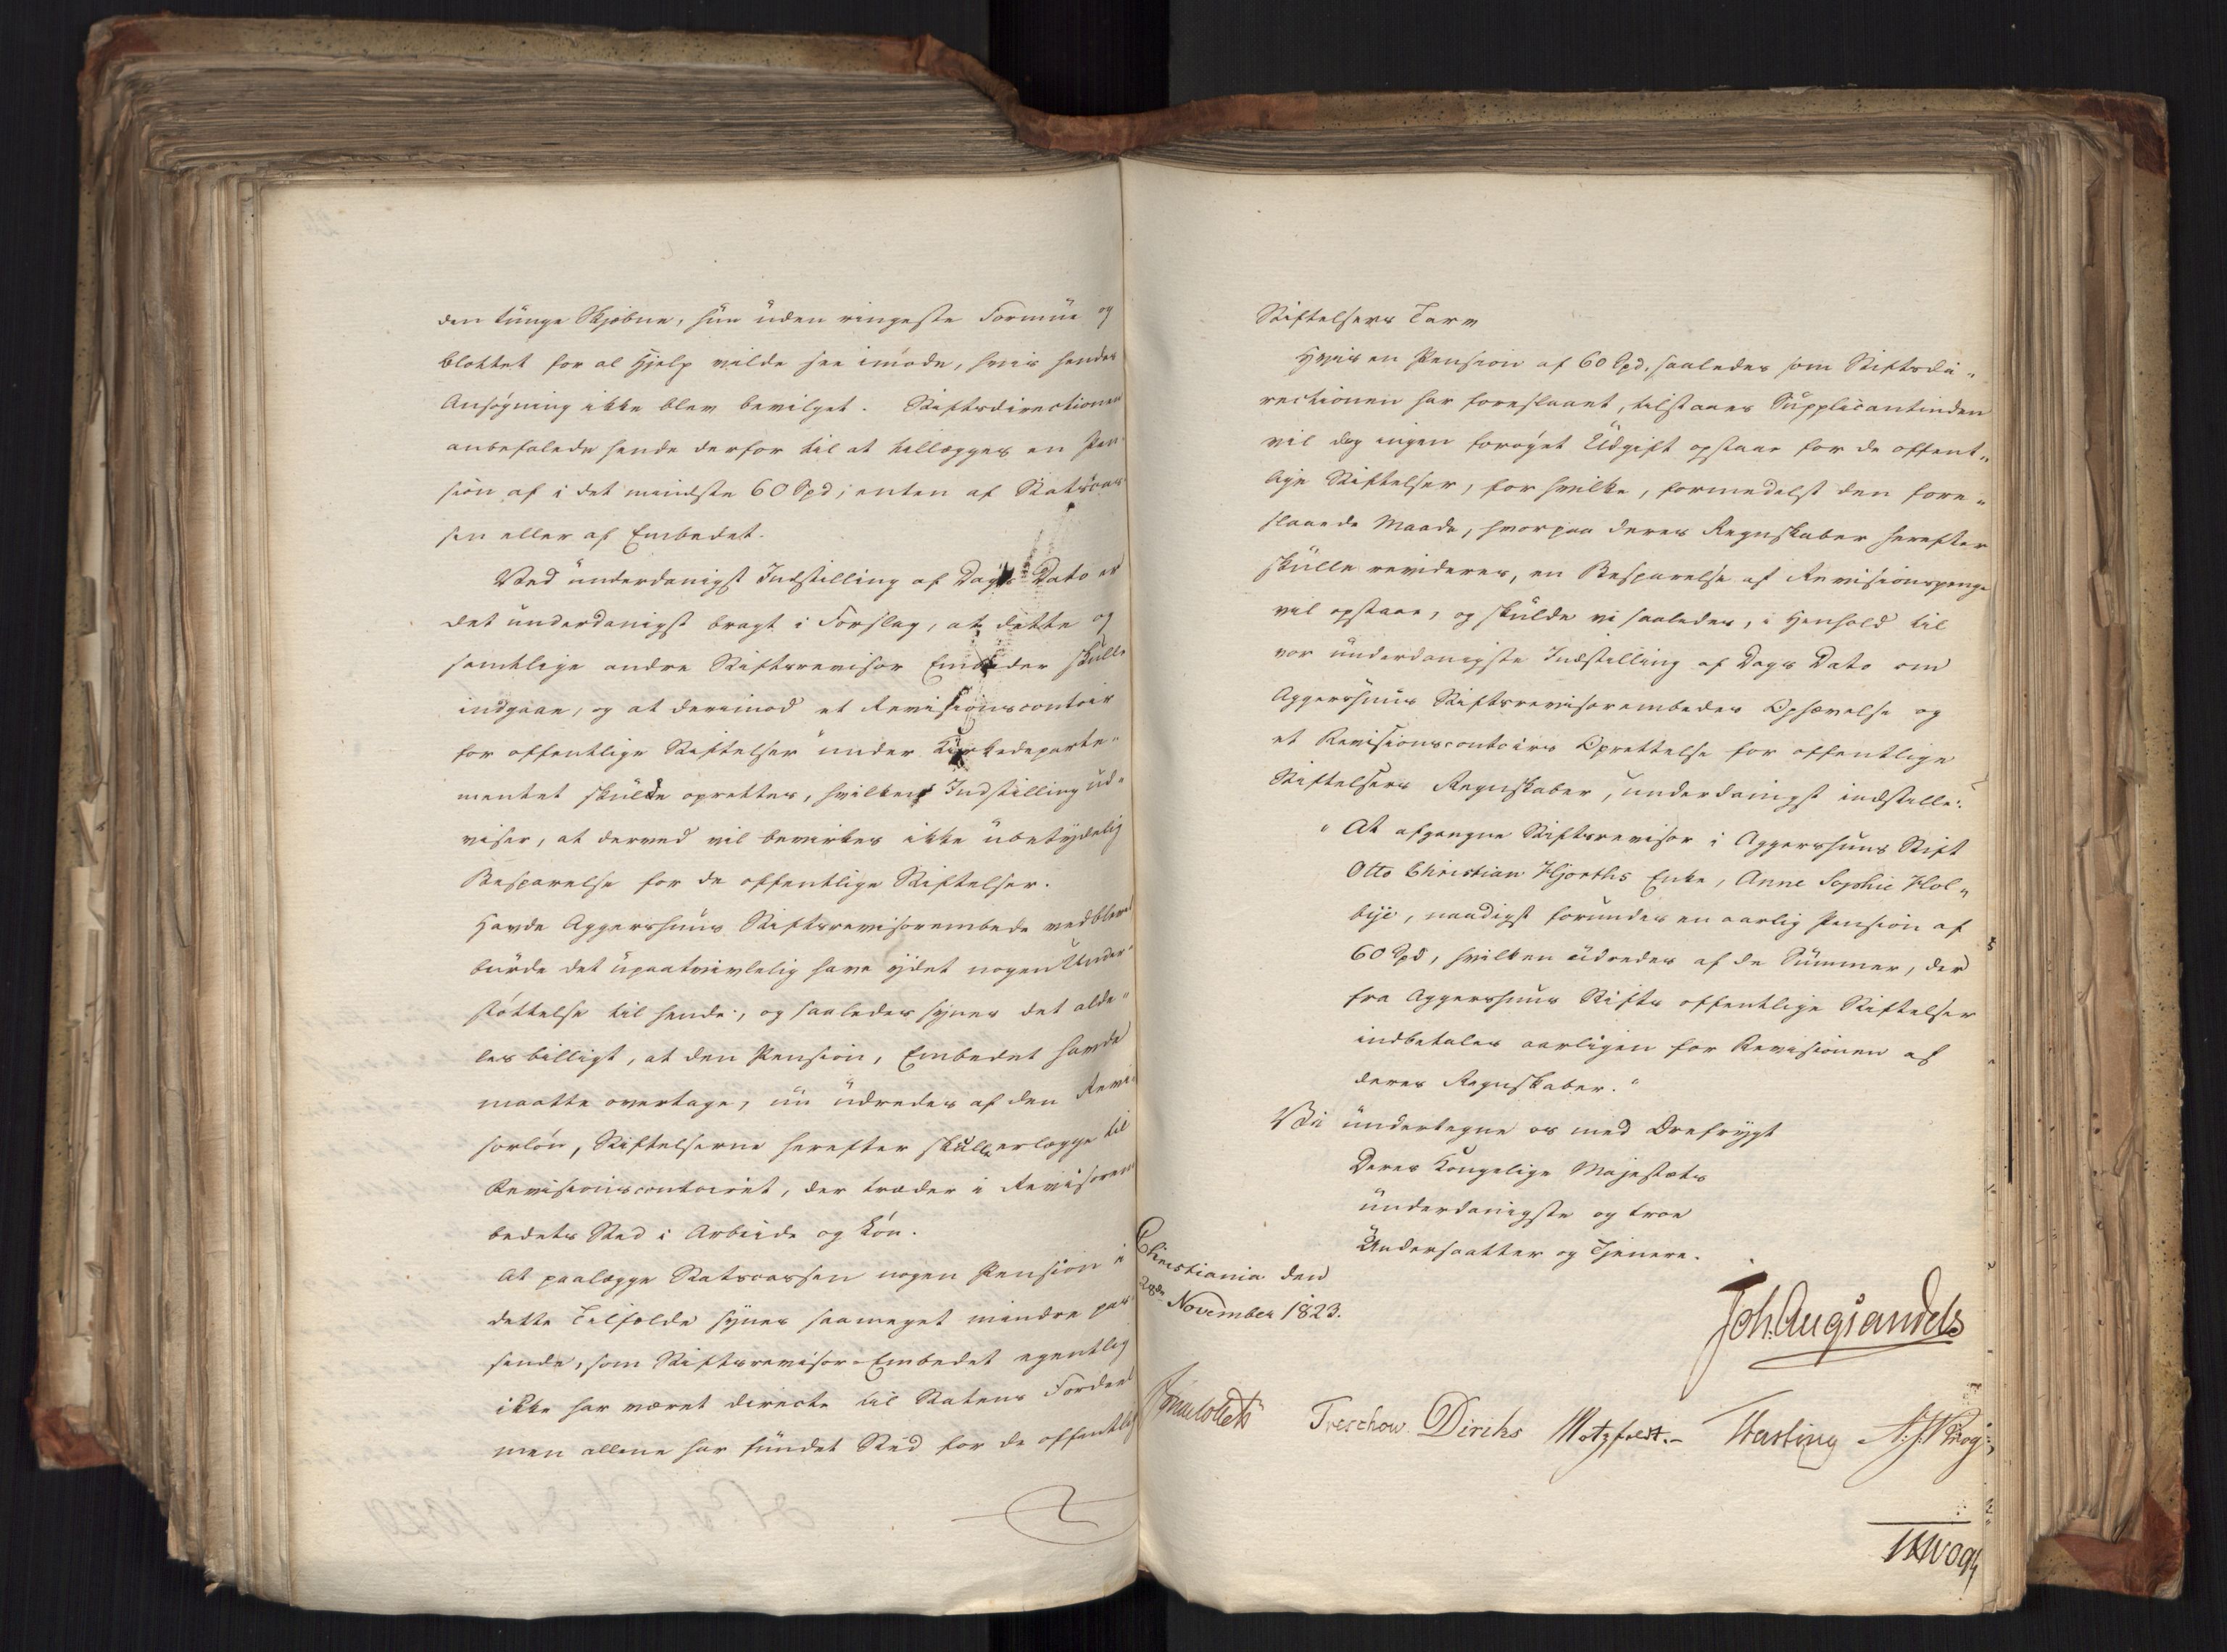 den tunge Skjebne, hun uden ringeste Formue og
blottet for al Hjelp vilde see imøde, hvis hendes
Ansøgning ikke blev bevilget. Stiftsdirectionen
anbefalede hende derfor til at tillægges en Pen-
sion af i det mindste 60 Spd, enten af Statscas-
sen eller af Embedet.
Ved underdanigst Indstilling af Dags Dato er
det underdanigst bragt i Forslag, at dette og
samtlige andre Stiftsrevisor Embeder skulle
indgaae, og at derimod et Revisionscontoir
for offentlige Stiftelser under Kirkedeparte-
mentet skulde oprettes, hvilken Indstilling ud-
viser, at derved vil bevirkes ikke ubetydelig
Besparelse for de offentlige Stiftelser.
Havde Aggershuus Stiftsrevisorembede vedblevet
burde det upaatvivlelig have ydet nogen Under-
støttelse til hende, og saaledes synes det alde-
les billigt, at den Pension, Embedet havde
maatte overtage, nu udredes af den Revi-
sorløn, Stiftelserne herefter skulle erlægge til
Revisionscontoiret, der træder i Revisorem-
bedets Sted i Arbeide og Løn.
At paalægge Statscassen nogen Pension i
dette Tilfælde synes saameget mindre pas-
sende, som Stiftsrevisor-Embedet egentlig
ikke har været directe til Statens Fordeel
men allene har fundet Sted for de offentlige
Stiftelsers Tarv
Hvis en Pension af 60 Spd. saaledes som Stiftsdi-
rectionen har foreslaaet, tilstaaes Supplicantinden
vil dog ingen forøget Udgift opstaae for de offent-
lige Stiftelser, for hvilke, formedelst den fore-
slaaede Maade, hvorpaa deres Regnskaber herefter
skulle revideres, en Besparelse af Revisionspenge
vil opstaae, og skulde vi saaledes, i Henhold til
vor underdanigste Indstilling af Dags Dato om
Aggershuus Stiftsrevisorembedes Ophævelse og
et Revisionscontoirs Oprettelse for offentlige
Stiftelsers Regnskaber, underdanigst indstille:
"At afgangne Stiftsrevisor i Aggershuus Stift
Otto Christian Hjorths Enke, Anne Sophie Hol-
bye, naadigst forundes en aarlig Pension af
60 Spd, hvilken udredes af de Summer, der
fra Aggershuus Stifts offentlige Stiftelser
indbetales aarligen for Revisionen af
deres Regnskaber."
Vi undertegne os med Ærefrygt
Deres Kongelige Majestæts
underdanigste og troe
Undersaatter og Tjenere.
Christiania den
28de November 1823.
Joh. Aug Sandels
Treschow Diriks Motzfeldt.- Fasting